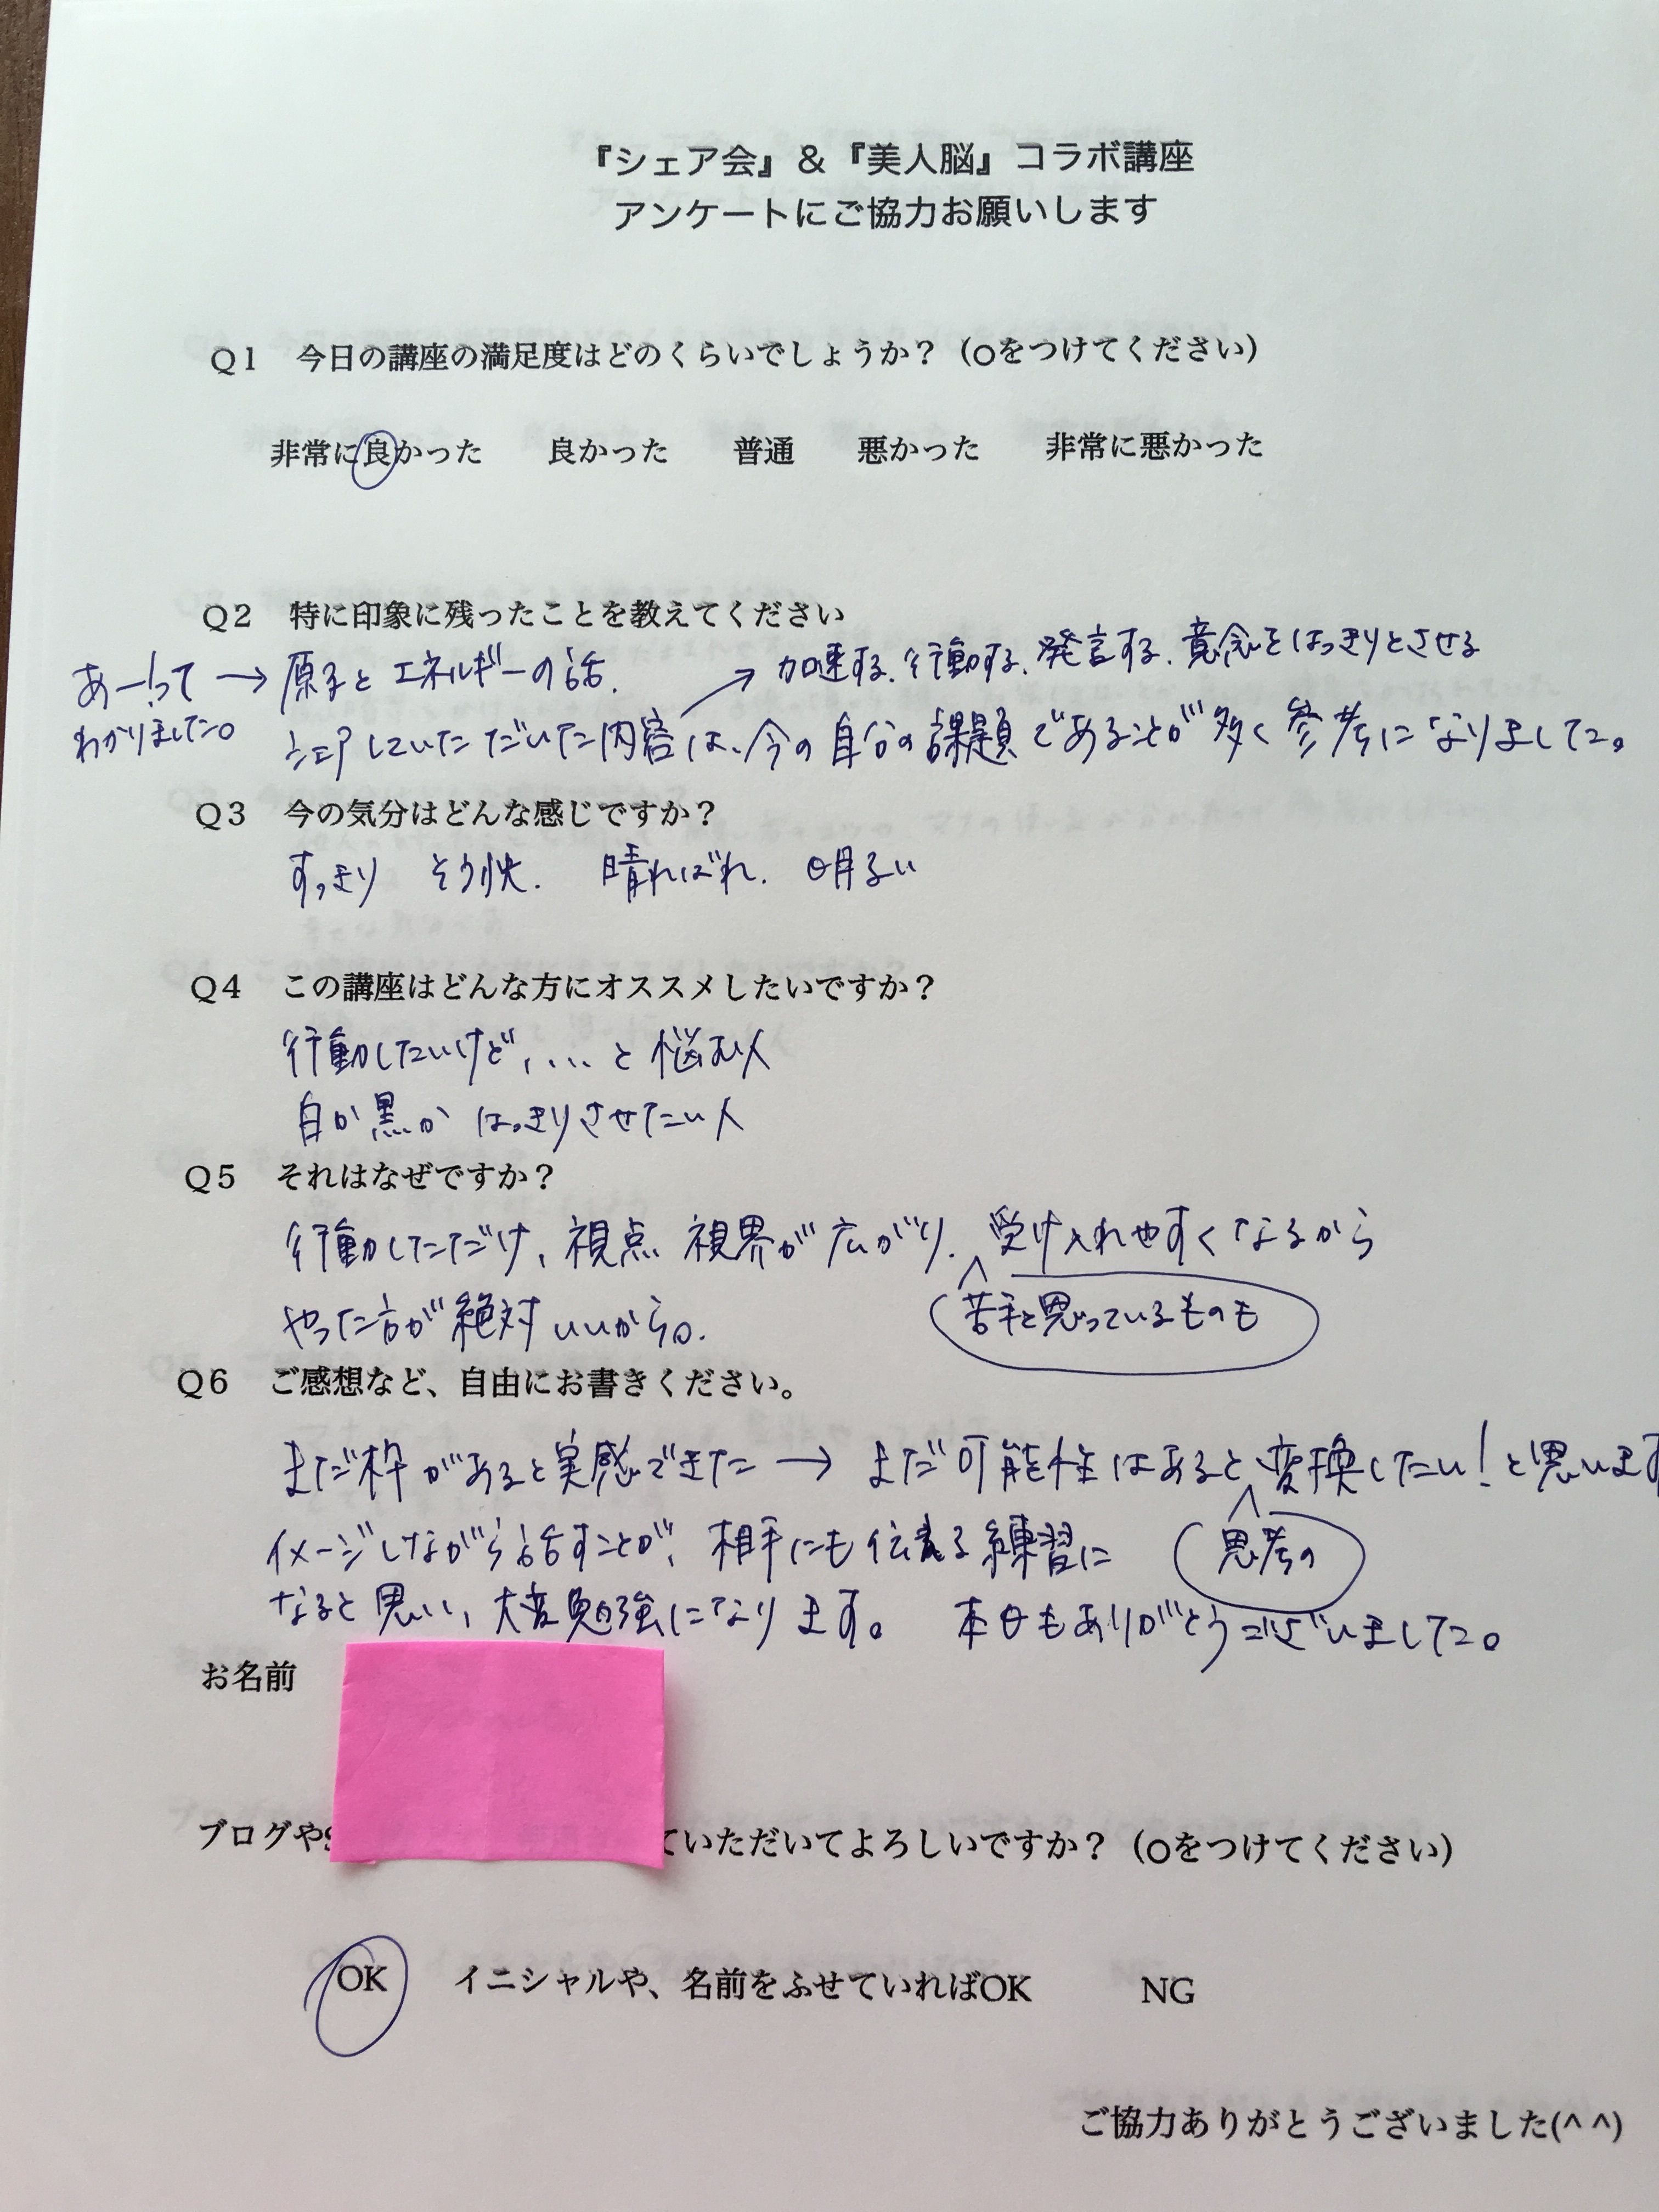 『シェア会』＆『美人脳』コラボ講座
アンケートにご協力お願いします
Q1　今日の講座の満足度はどのくらいでしょうか？（○をつけてください）
非常に良かった　良かった　普通　悪かった　非常に悪かった
Q2　特に印象に残ったことを教えてください
あー！って → 原子と エネルギーの話.
わかりました。
→ 加速する. 行動する. 発言する. 意念をはっきりとさせる
シェアしていただいた内容は、今の自分の課題であることが多く参考になりました。
Q3　今の気分はどんな感じですか？
すっきり　そう快.　晴ればれ.　明るい
Q4　この講座はどんな方にオススメしたいですか？
行動したいけど、... と 悩む人
白か黒か はっきりさせたい人
Q5　それはなぜですか？
行動しただけ、視点 視界が広がり. 受け入れやすくなるから
苦手と思っているものも
やった方が絶対いいから。
Q6　ご感想など、自由にお書きください。
まだ枠があると実感できた → まだ可能性はあると変換したい！と思います
思考の
イメージしながら話すことが、相手にも伝える練習に
なると思い、大変勉強になります。　本日もありがとうございました。
お名前
ブログや ていただいてよろしいですか？（○をつけてください）
OK　イニシャルや、名前をふせていればOK　NG
ご協力ありがとうございました(^ ^)